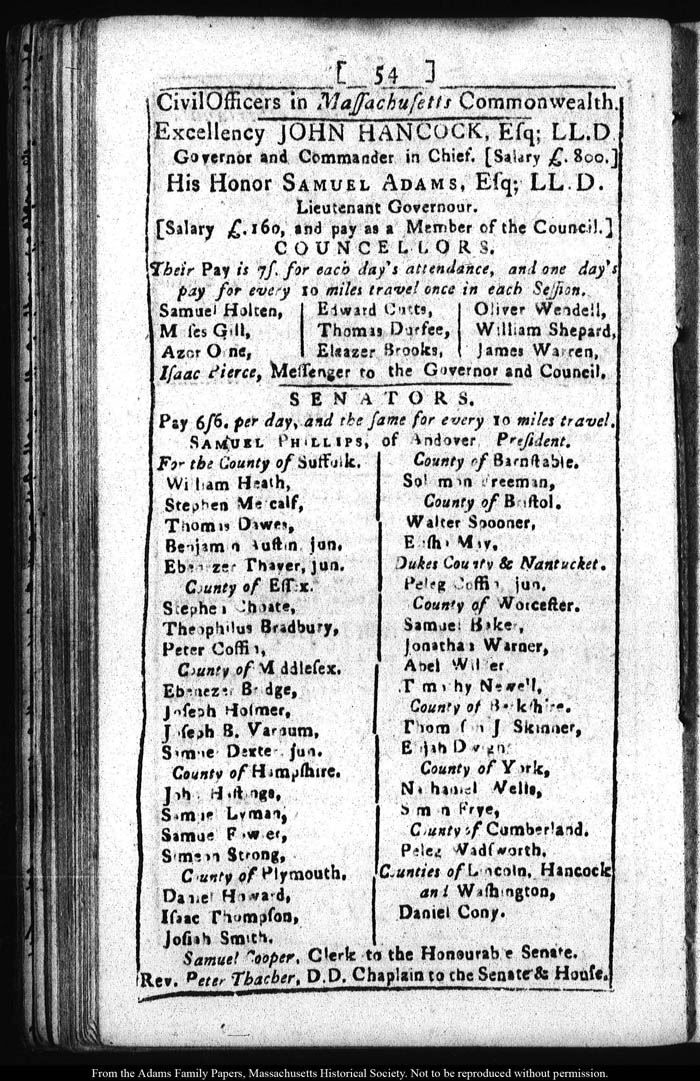 [ 54 ]
Civil Officers in Maſſachuſetts Commonwealth.
Excellency JOHN HANCOCK, Eſq; LL.D
Governor and Commander in Chief. [Salary £. 800.]
His Honor SAMUEL ADAMS, Eſq; LL.D.
Lieutenant Governour.
[Salary £. 160, and pay as a Member of the Council.]
COUNCELLORS.
Their Pay is 7ſ. for each day's attendance, and one day's
pay for every 10 miles travel once in each Seſſion.
Samuel Holten,
Moſes Gill,
Azor Orne,
Edward Cutts,
Thomas Durfee,
Eleazer Brooks,
Oliver Wendell,
William Shepard,
James Warren,
Iſaac Pierce, Meſſenger to the Governor and Council.
SENATORS.
Pay 6ſ6. per day, and the ſame for every 10 miles travel.
SAMUEL PHILLIPS, of Andover, Preſident.
For the County of Suffolk.
William Heath,
Stephen Metcalf,
Thomas Dawes,
Benjamin Auſtin, jun.
Ebenezer Thayer, jun.
County of Eſſex.
Stephen Choate,
Theophilus Bradbury,
Peter Coffin,
County of Middleſex.
Ebenezer Bridge,
Joſeph Hoſmer,
Joſeph B. Varnum,
Samuel Dexter, jun.
County of Hampſhire.
John Haſtings,
Samuel Lyman,
Samuel Fowler,
Simeon Strong,
County of Plymouth.
Daniel Howard,
Iſaac Thompſon,
Joſiah Smith.
County of Barnſtable.
Solomon Freeman,
County of Briſtol.
Walter Spooner,
Eliſha May,
Dukes County & Nantucket.
Peleg Coffin, jun.
County of Worceſter.
Samuel Baker,
Jonathan Warner,
Abel Wilder
Timothy Newell,
County of Berkſhire.
Thompſon J Skinner,
Elijah Dwight
County of York,
Nathaniel Wells,
Simon Frye,
County of Cumberland.
Peleg Wadſworth,
Counties of Lincoln, Hancock
and Waſhington,
Daniel Cony.
Samuel Cooper, Clerk to the Honourable Senate.
Rev. Peter Thacher, D.D. Chaplain to the Senate & Houſe.
From the Adams Family Papers, Massachusetts Historical Society. Not to be reproduced without permission.